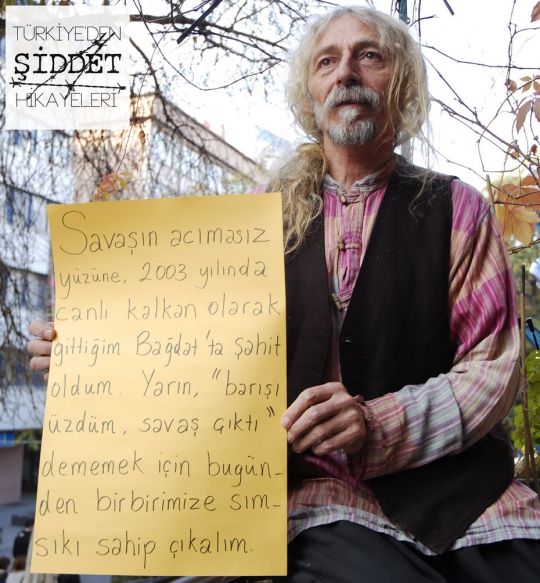 TÜRKİYEDEN
ŞİDDET
HİKAYELERİ
Savaşın acımasız
yüzüne, 2003 yılında
canlı kalkan olarak
gittiğim Bağdat'ta şahit
oldum. Yarın, "barışı
üzdüm, savaş çıktı"
dememek için bugün_
den birbirimize sım_
sıkı sahip çıkalım.